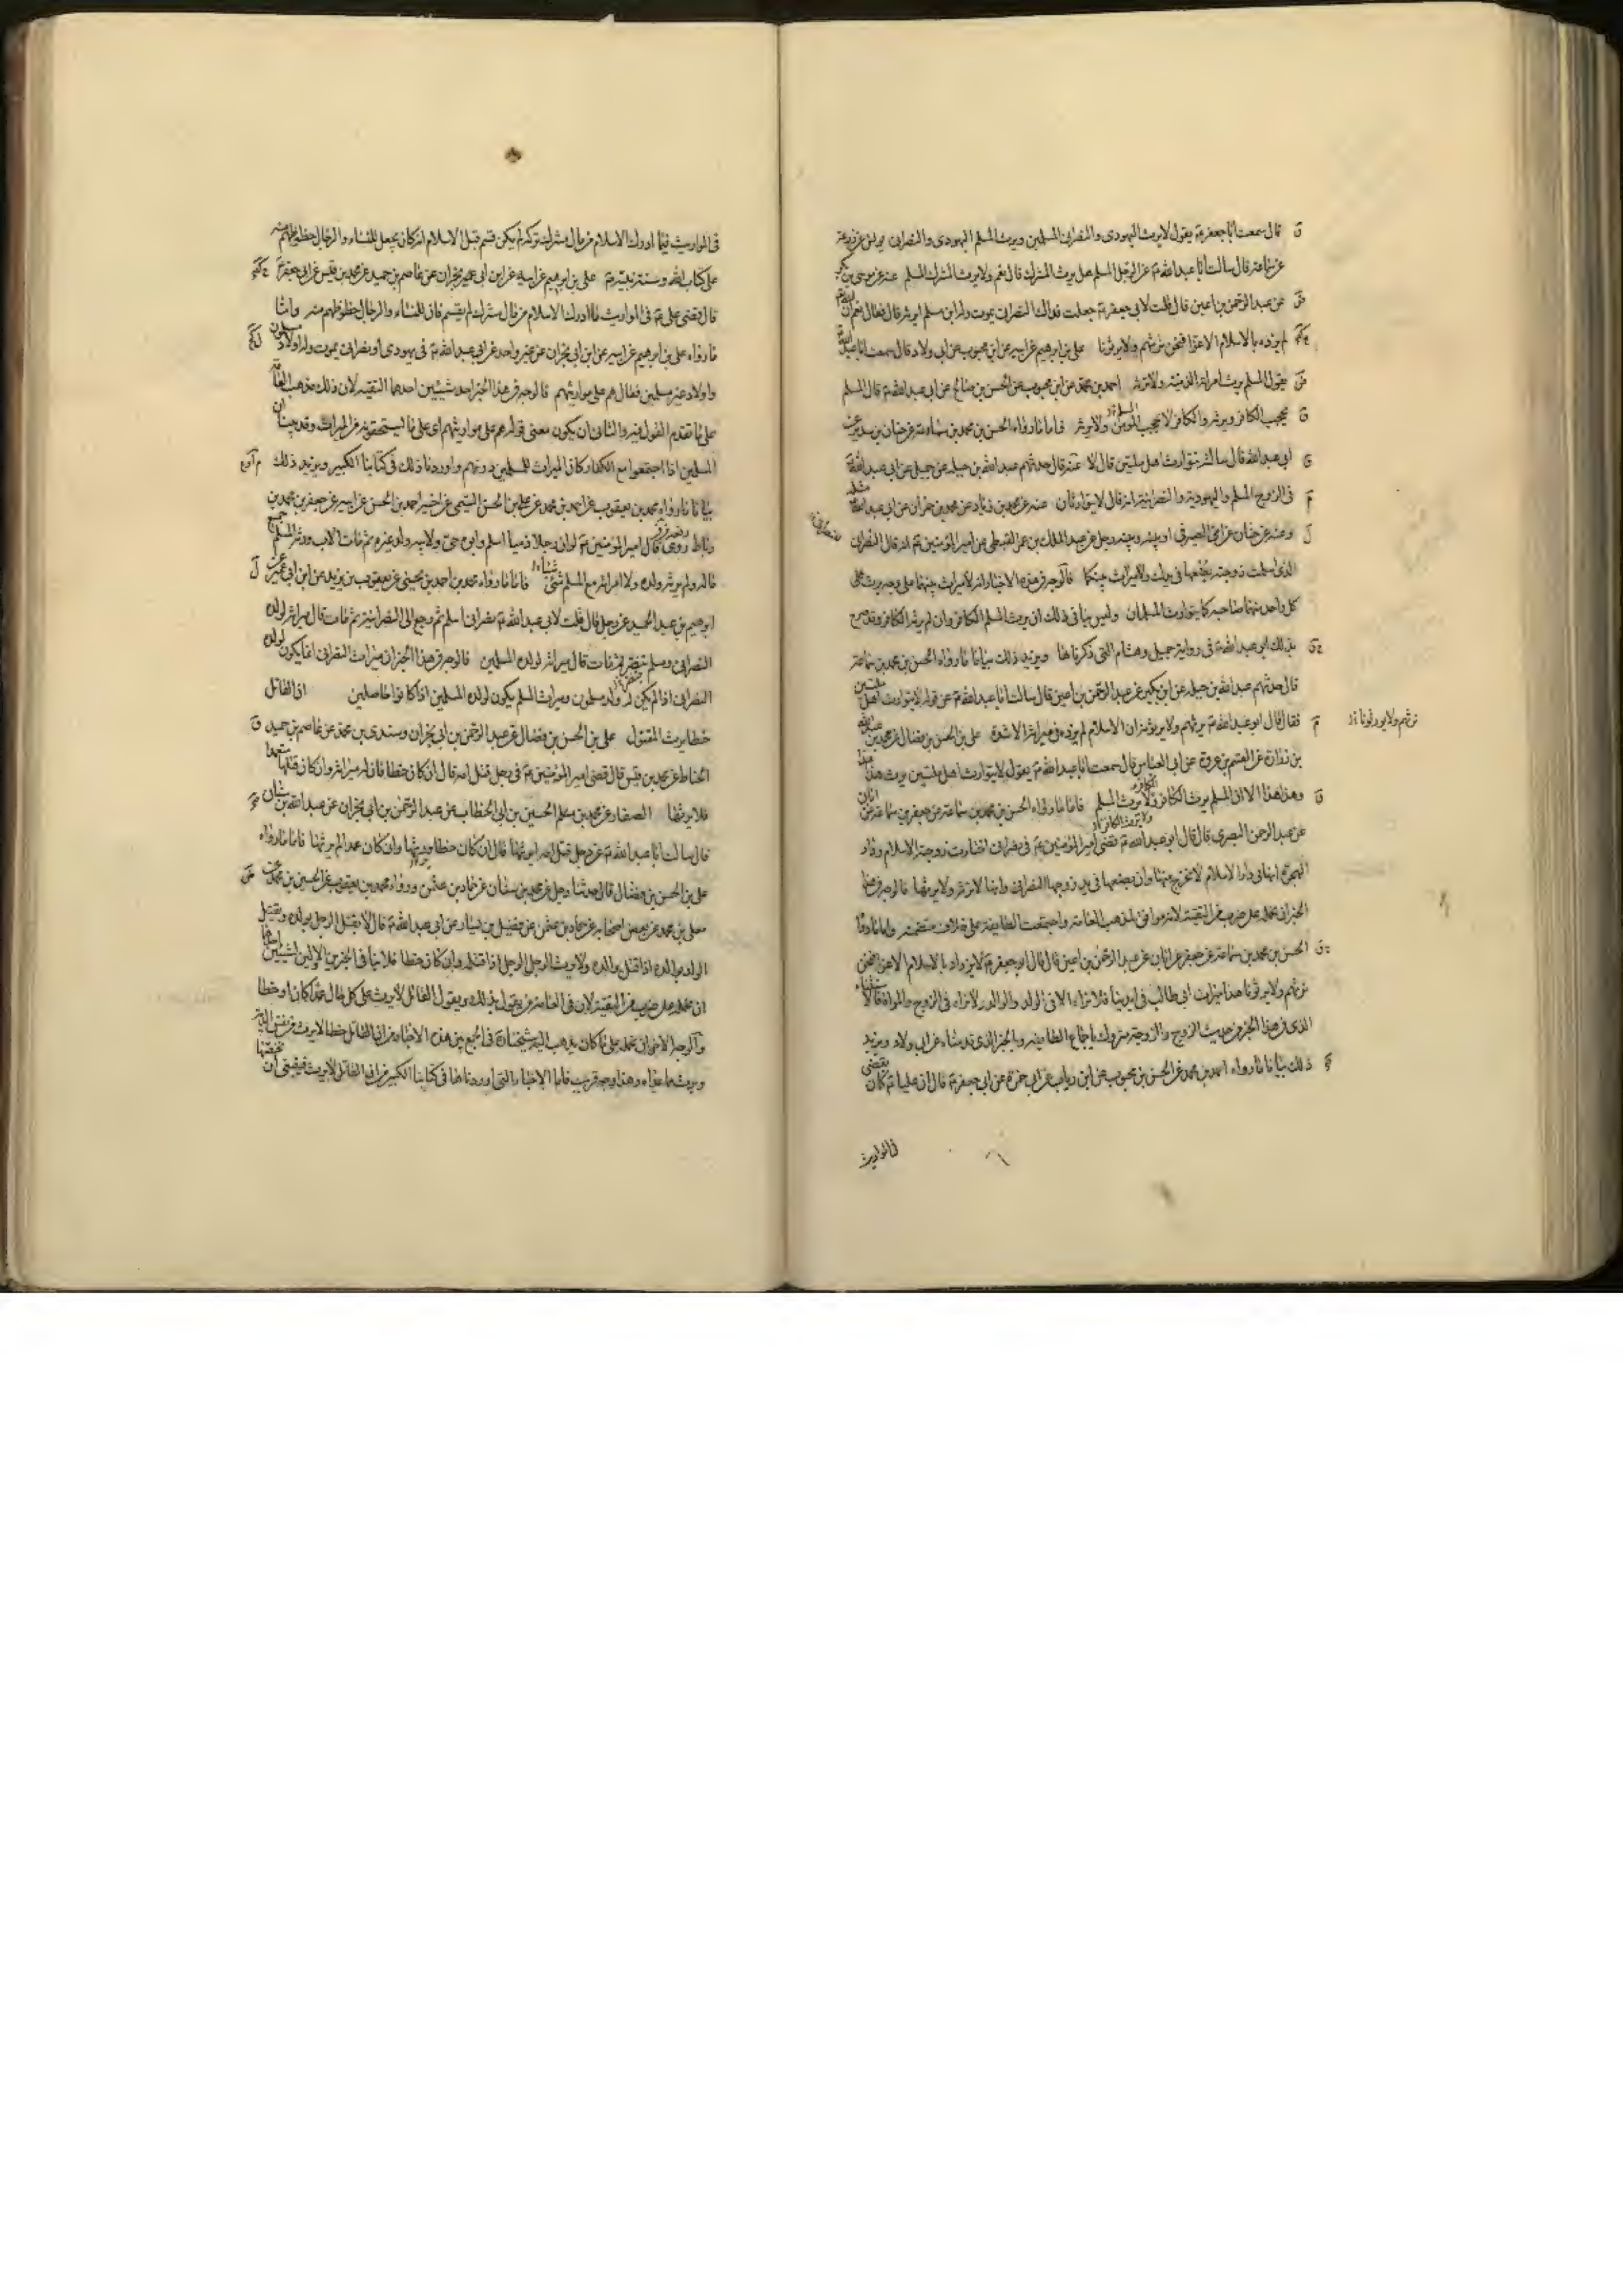 قال سمعت ابا جعفر ع يقول لا يرث اليهودى والنصرانى المسلمين ويرث المسلم اليهودى والنصرانى
قال سالت ابا عبد الله ع عن الرجل المسلم هل يرث المشرك قال نعم ولا يرث المشرك المسلم عنه عن موسى بن بكر
عن عبد الرحمن بن اعين قال قلت لابى جعفر ع جعلت فداك النصرانى يموت وله ابن مسلم ايرثه قال فقال نعم ان الله
لم يزده بالاسلام الا عزا فنحن نرثهم ولا يرثونا على بن ابرهيم عن ابيه عن ابن محبوب عن ابى ولاد قال سمعت ابا عبد الله
يقول المسلم يرث امراته الذمية ولا ترثه احمد بن محمد عن ابن محبوب عن الحسن بن صالح عن ابى عبد الله ع قال المسلم
يحجب الكافر ويرثه والكافر لا يحجب المؤمن ولا يرثه فاما ما رواه الحسن بن محمد بن سماعة عن حنان بن سدير عن
ابى عبد الله قال سالته يتوارث اهل ملتين قال لا عنه قال حدثهم عبد الله بن جبلة عن جميل عن ابى عبد الله ع
فى الزوج المسلم واليهودية والنصرانية انه قال لا يتوارثان عنه عن محمد بن زياد عن محمد بن حمران عن ابى عبد الله ع مثله
وعنه عن حنان عن امى الصيرفى او بينه وبينه رجل عن عبد الملك بن عمر القبطى عن امير المؤمنين ع انه قال للنصرانى
الذى اسلمت زوجته بضعها فى يدك ولا ميراث بينكما فالوجه فى هذه الاخبار انه لا ميراث بينهما على وجه يرث كل
كل واحد منهما صاحبه كما يتوارث المسلمان وليس ينافى ذلك ان يرث المسلم الكافر وان لم يرثه الكافر وقد صرح
بذلك ابو عبد الله ع فى رواية جميل وهشام التى ذكرناها ويزيد ذلك بيانا ما رواه الحسن بن محمد بن سماعة
قال حدثهم عبد الله بن جبلة عن ابن بكير عن عبد الرحمن بن اعين قال سالت ابا عبد الله ع عن قوله لا يتوارث اهل ملتين
فقال قال ابو عبد الله ع نرثهم ولا يرثونا ان الاسلام لم يزده فى ميراثه الا شدة على بن الحسن بن فضال عن محمد بن عبد الله
نرثهم ولا يورثونا
بن زرارة عن القسم بن عروة عن ابى العباس قال سمعت ابا عبد الله ع يقول لا يتوارث اهل ملتين يرث هذا هذا
وهذا هذا الا ان المسلم يرث الكافر والكافر لا يرث المسلم فاما ما رواه الحسن بن محمد بن سماعة عن جعفر بن سماعة عن ابان
عن عبد الرحمن البصرى قال قال ابو عبد الله ع قضى امير المؤمنين ع فى نصرانى اختارت زوجته الاسلام ودار
الهجرة انها فى دار الاسلام لا تخرج منها وان بضعها فى يد زوجها النصرانى وانها لا ترثه ولا يرثها فالوجه فى هذا
الخبر ان نحمله على ضرب من التقية لانه موافق لمذهب العامة واجتمعت الطايفة على خلاف متضمنه واما ما رواه
الحسن بن محمد بن سماعة عن جعفر عن ابان عن عبد الرحمن بن اعين قال قال ابو جعفر ع لا يزداد بالاسلام الا عزا فنحن
نرثهم ولا يرثونا هذا ميراث ابى طالب فى ايدينا فلا نراه الا فى الولد والوالد ولا نراه فى الزوج والمراة فالاستثناء
الذى فى هذا الخبر من حيث الزوج والزوجة متروك باجماع الطايفة وبالخبر الذى قدمناه عن ابى ولاد ويزيد
ذلك بيانا ما رواه احمد بن محمد عن الحسن بن محبوب عن ابن رياب عن ابى حمزة عن ابى جعفر ع قال ان عليا ع كان يقضى
فى المواريث
فى المواريث فيما ادرك الاسلام من مال مشرك تركه لم يكن قسم قبل الاسلام انه كان يجعل للنساء والرجال حظوظهم منه
على كتاب الله وسنة نبيه ع على بن ابرهيم عن ابيه عن ابن ابى نجران عن عاصم بن حميد عن محمد بن قيس عن ابى جعفر ع
قال قضى على ع فى المواريث ما ادرك الاسلام من مال مشرك لم يقسم فان للنساء والرجال حظوظهم منه واما
ما رواه على بن ابرهيم عن ابيه عن ابن ابى نجران عن غير واحد عن ابى عبد الله ع فى يهودى او نصرانى يموت وله اولاد مسلمون
واولاد غير مسلمين فقال هم على مواريثهم فالوجه فى هذا الخبر احد شيئين احدهما التقية لان ذلك مذهب العامة
على ما تقدم القول فيه والثانى ان يكون معنى قوله هم على مواريثهم اى على ما يستحقونه من الميراث وقد بينا ان
المسلمين اذا اجتمعوا مع الكفار كان الميراث للمسلمين دونهم واوردنا ذلك فى كتابنا الكبير ويزيد ذلك
بيانا ما رواه محمد بن يعقوب عن احمد بن محمد عن على بن الحسن التيمى عن اخيه احمد بن الحسن عن ابيه عن جعفر بن محمد عن
رباط رفعه قال قال امير المؤمنين ع لو ان رجلا ذميا اسلم وابوه حى ولابيه ولد غيره ثم مات الاب ورثه المسلم جميع
ماله ولم يرثه ولده ولا امراته مع المسلم شيئا فاما ما رواه محمد بن احمد بن يحيى عن يعقوب بن يزيد عن ابن ابى عمير عن
ابرهيم بن عبد الحميد عن رجل قال قلت لابى عبد الله ع نصرانى اسلم ثم رجع الى النصرانية ثم مات قال ميراثه لولده
النصرانى ومسلم تنصر ثم مات قال ميراثه لولده المسلمين فالوجه فى هذا الخبر ان ميراث النصرانى انما يكون لولده
النصرانى اذا لم يكن له ولد مسلمون وميراث المسلم يكون لولده المسلمين اذا كانوا حاصلين ان القاتل
خطا يرث المقتول على بن الحسن بن فضال عن عبد الرحمن بن ابى نجران وسندى بن محمد عن عاصم بن حميد
الحناط عن محمد بن قيس قال قضى امير المؤمنين ع فى رجل قتل امه قال ان كان خطا فان له ميراثه وان كان قتلها متعمدا
فلا يرثها الصفار عن محمد بن الحسين بن ابى الخطاب عن عبد الرحمن بن ابى نجران عن عبد الله بن سنان
قال سالت ابا عبد الله ع عن رجل قتل امه ايرثها قال ان كان خطا يرثها وان كان عمدا لم يرثها فاما ما رواه
على بن الحسن بن فضال قال حدثنا رجل عن محمد بن سنان عن حماد بن عثمن ورواه محمد بن يعقوب عن الحسين بن محمد عن
معلى بن محمد عن بعض اصحابه عن حماد بن عثمن عن فضيل بن يسار عن ابى عبد الله ع قال لا يقتل الرجل بولده ويقتل
الولد بوالده اذا قتل والده ولا يرث الرجل الرجل اذا قتله وان كان خطا فلا ينافى الخبرين الاولين لشيئين احدهما
ان نحمله على ضرب من التقية لان فى العامة من يقول بذلك ويقول القاتل لا يرث على كل حال عمدا كان او خطا
والوجه الاخر ان نحمله على ما كان يذهب اليه شيخنا ره فى الجمع بين هذه الاخبار من ان القاتل خطا لا يرث من نفس الدية
ويرث ما عداه وهذا وجه قريب فاما الاخبار التى اوردناها فى كتابنا الكبير من ان القاتل لا يرث فينبغى ان نخصها